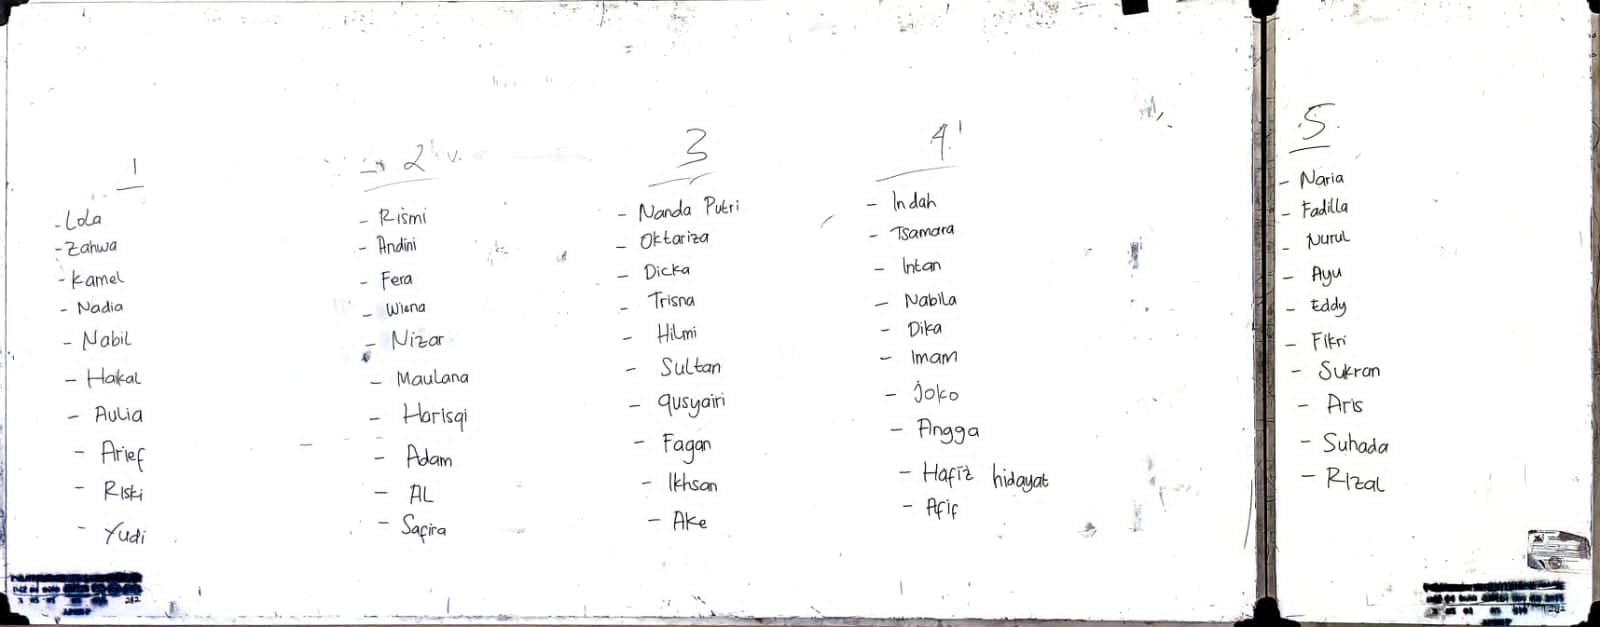 1
- Lola
- Zahwa
- Kamel
- Nadia
- Nabil
- Haikal
- Aulia
- Arief
- Riski
- Yudi
2
- Rismi
- Andini
- Fera
- Wiena
- Nizar
- Maulana
- Harisqi
- Adam
- AL
- Safira
3
- Nanda Putri
- Oktariza
- Dicka
- Trisna
- Hilmi
- Sultan
- qusyairi
- Fagan
- Ikhsan
- Ake
4
- Indah
- Tsamara
- Intan
- Nabila
- Dika
- Imam
- Joko
- Angga
- Hafiz hidayat
- Afif
5
- Naria
- Fadilla
- Nurul
- Ayu
- Eddy
- Fikri
- Sukran
- Aris
- Suhada
- Rizal